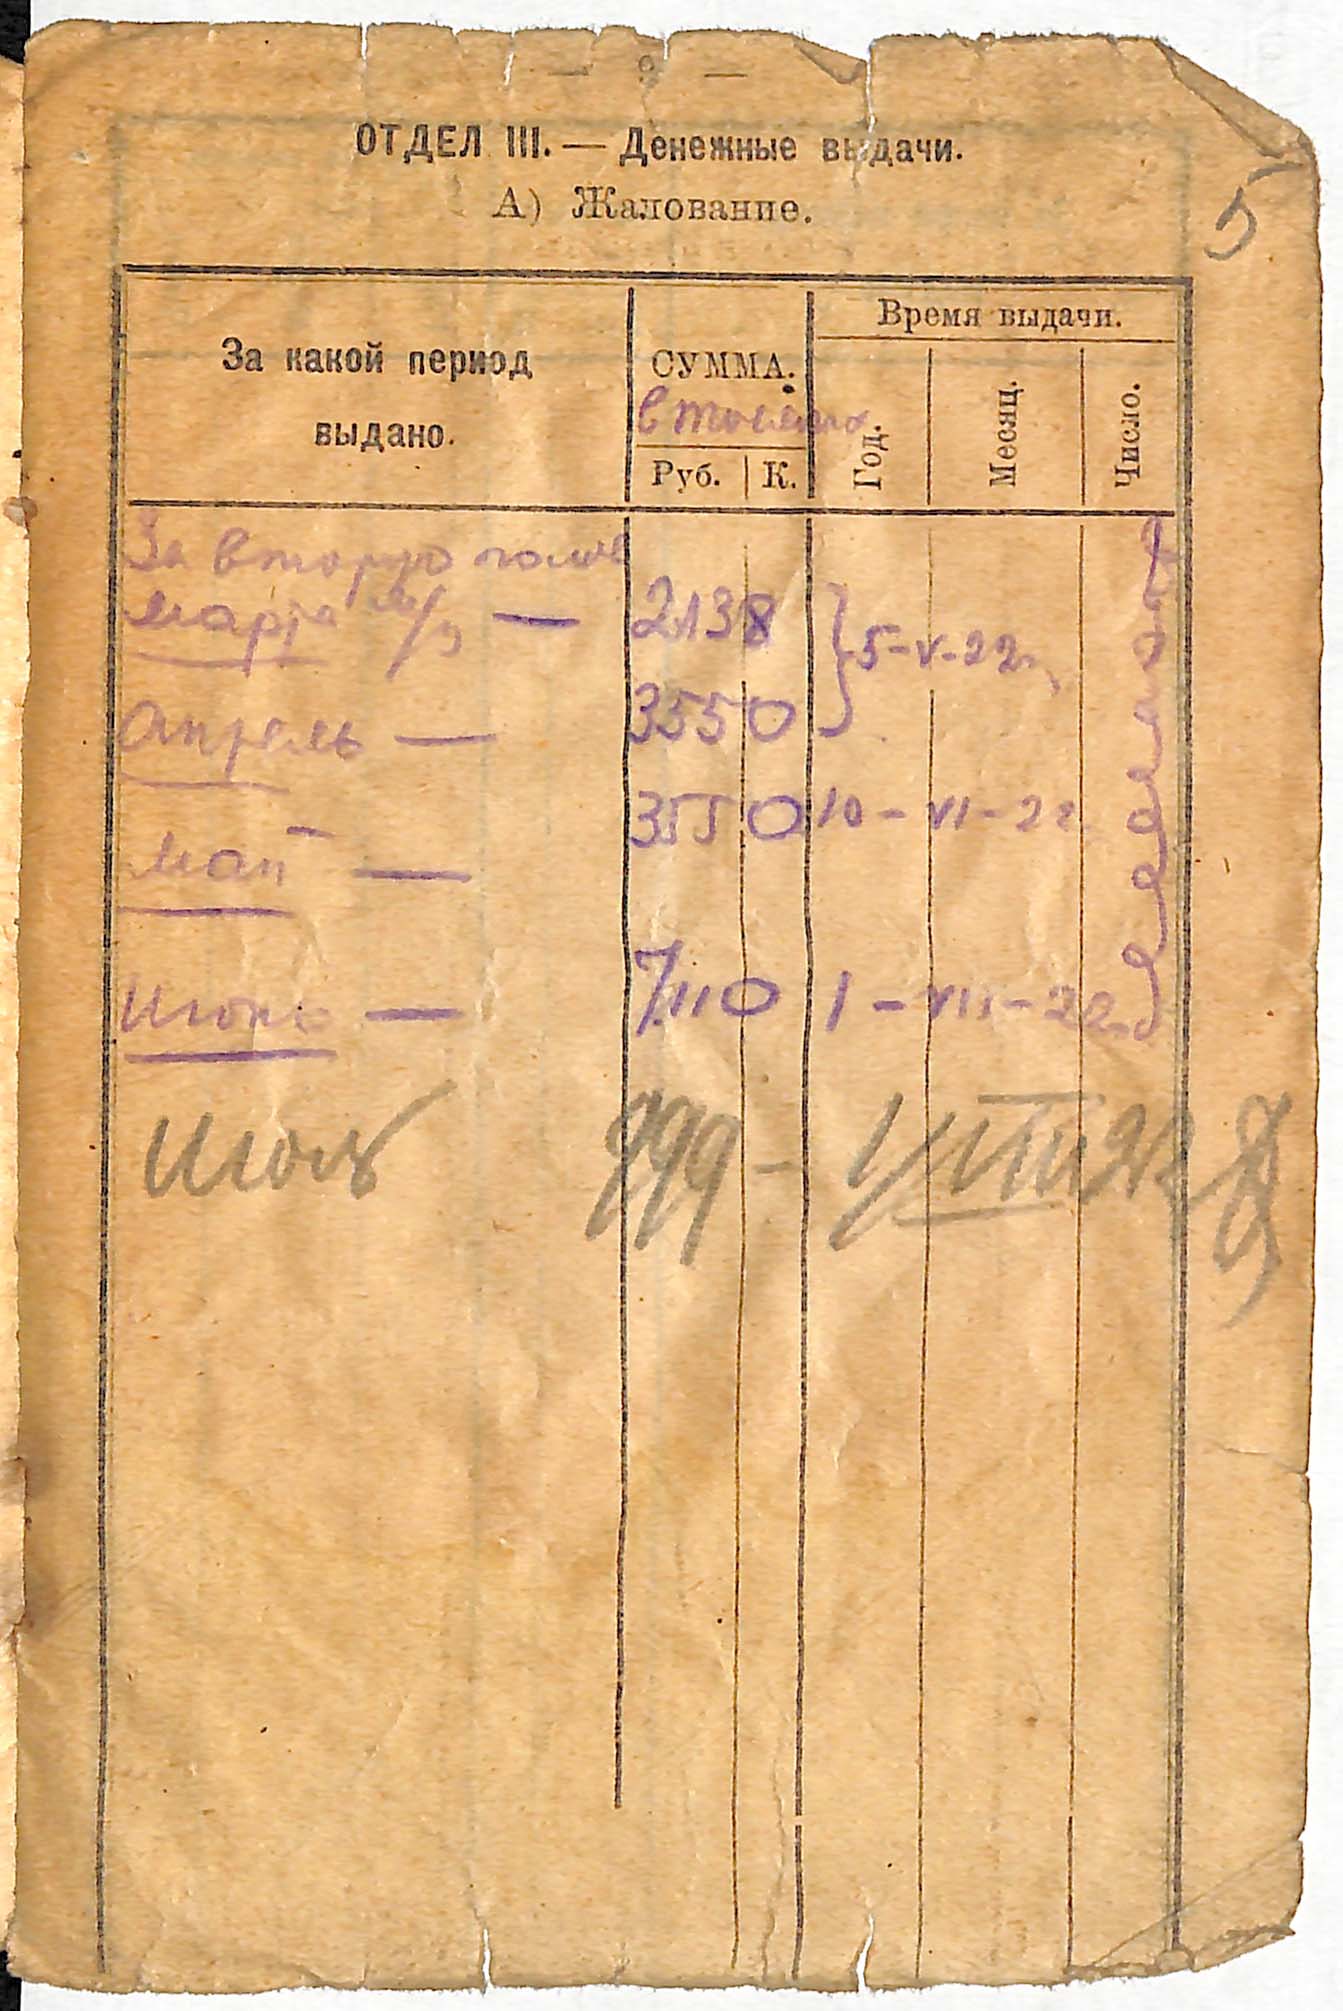 — 9 —
ОТДЕЛ III. — Денежные выдачи.
А) Жалование.
5
За какой период выдано.
СУММА.
в тысячах
Руб. К.
Время выдачи.
Год. Месяц. Число.
За вторую полов
марта м/г — 2138
Апрель — 3550 } 5-V-22г.
май — 3550 10-VI-22
Июнь — 7110 1-VII-22г.
Июль 799 -